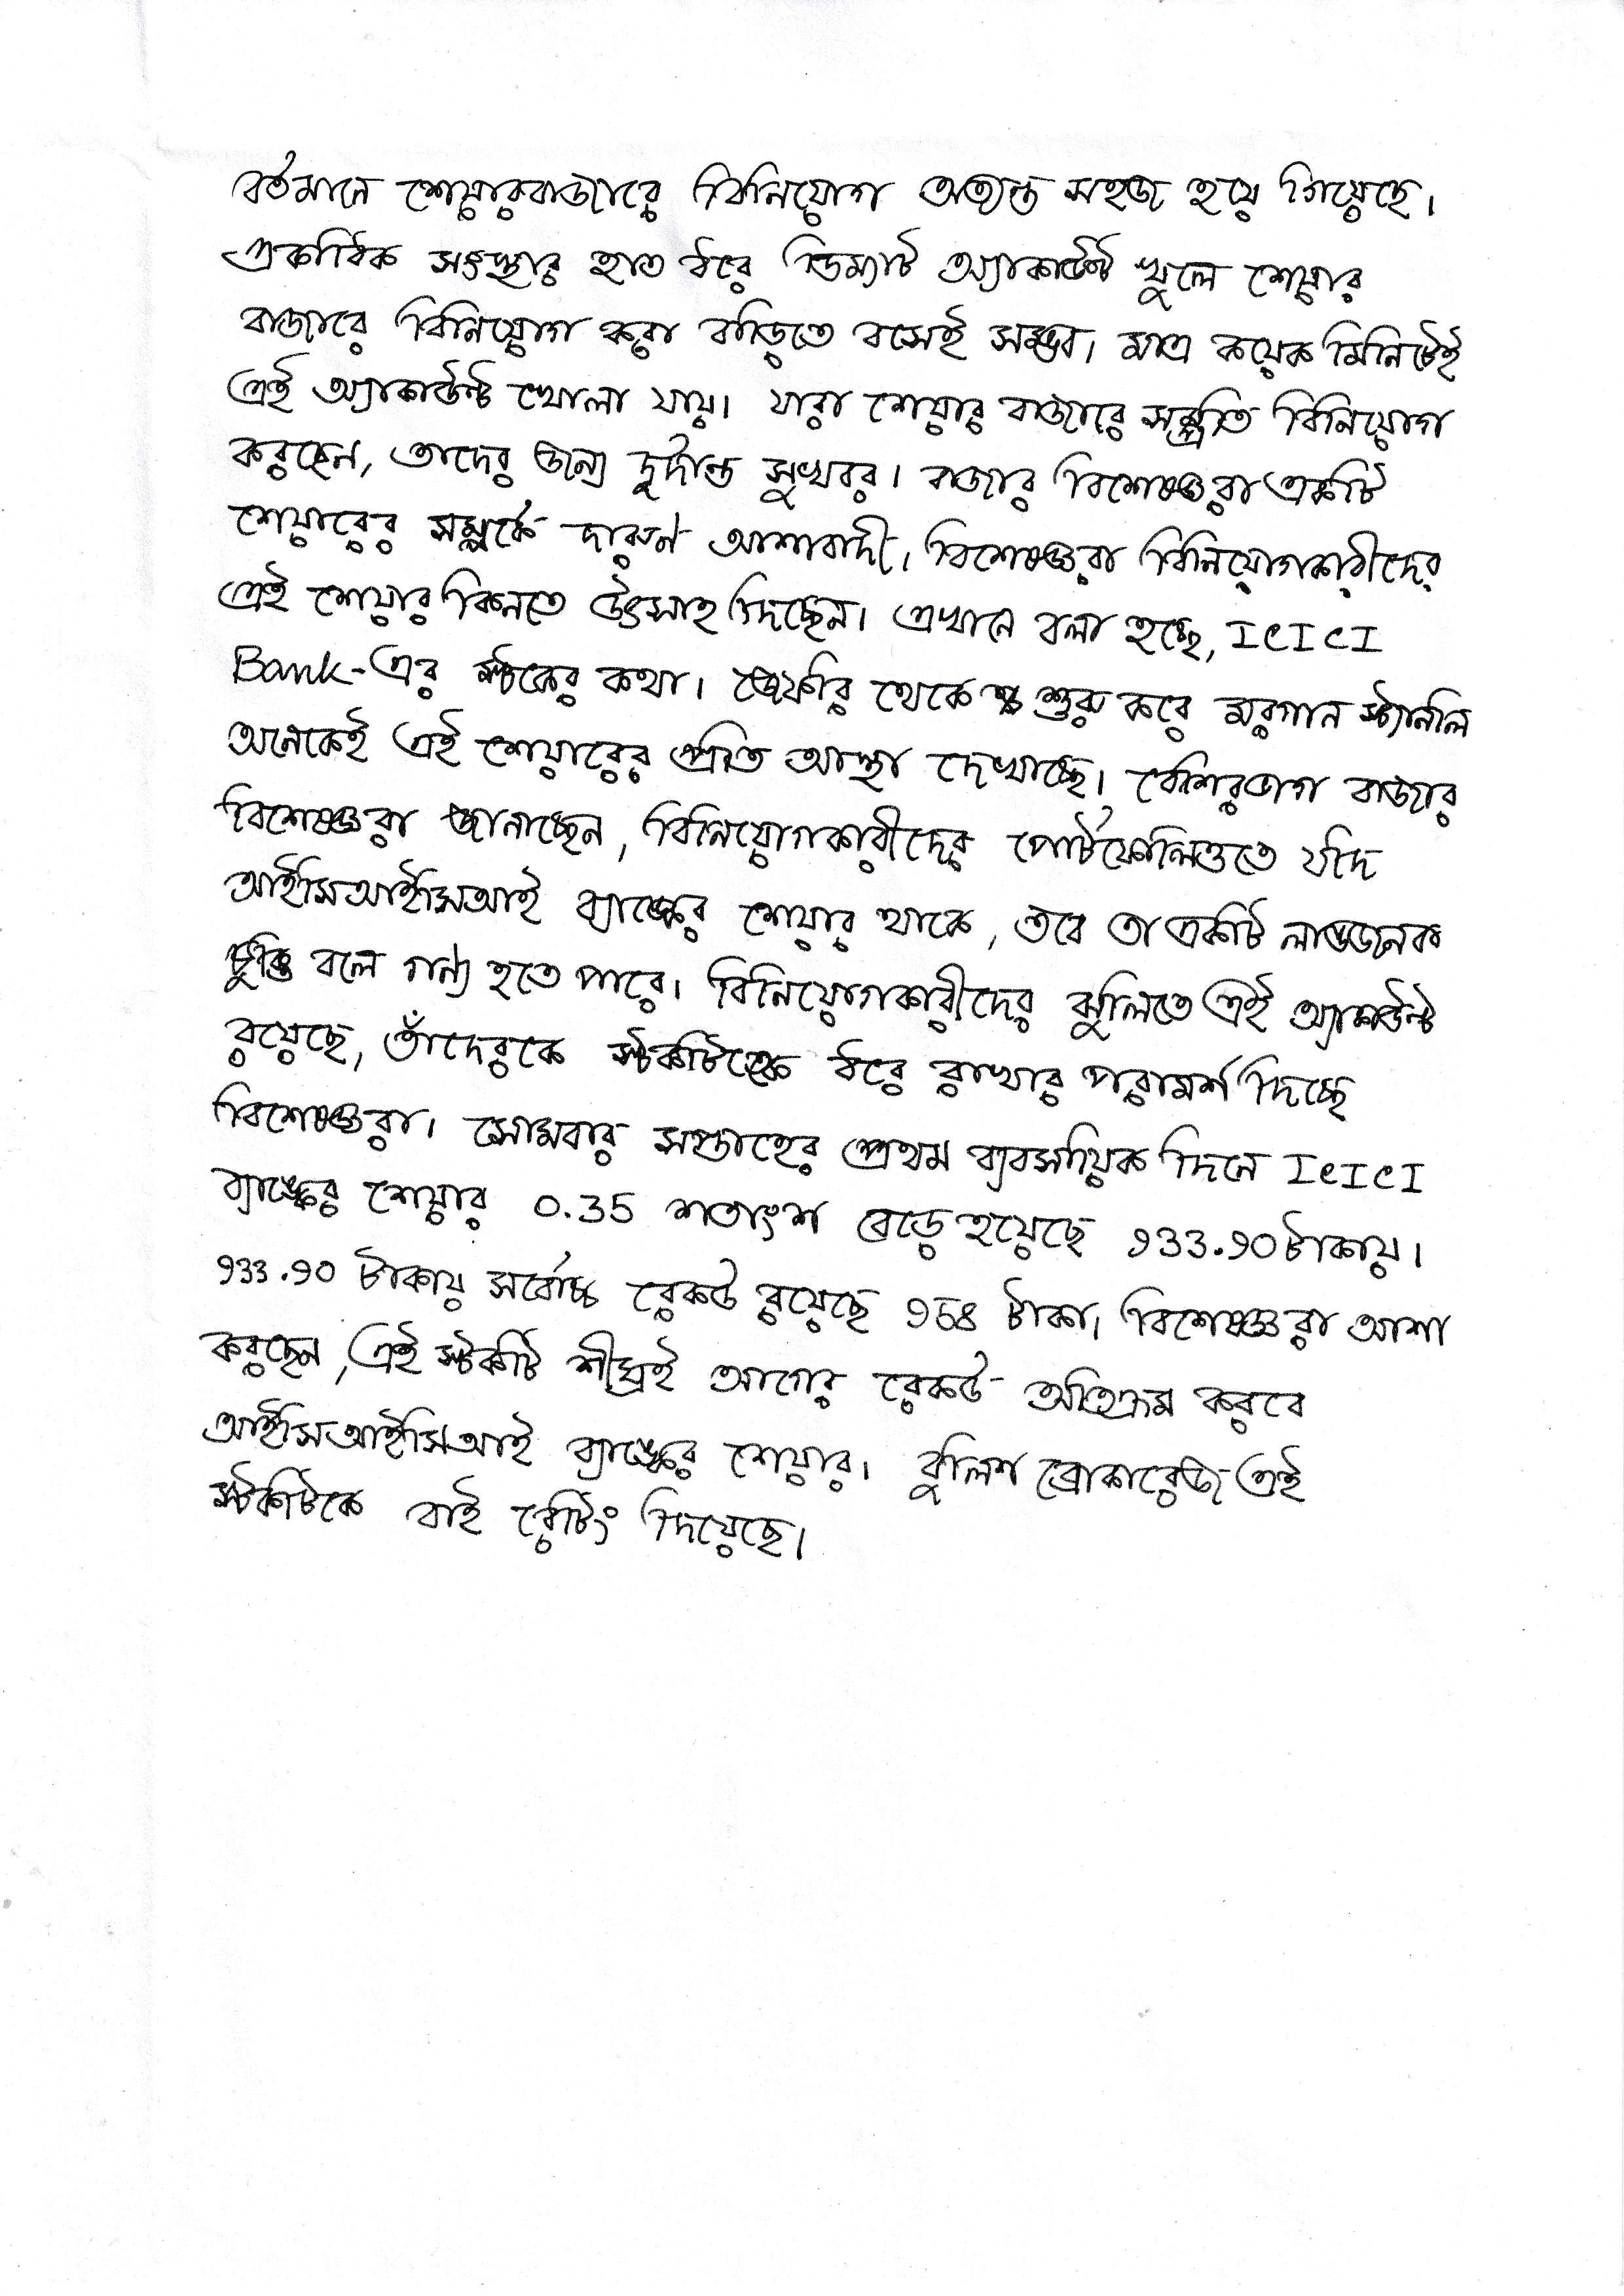 বর্তমানে শেয়ারবাজারে বিনিয়োগ অত্যন্ত সহজ হয়ে গিয়েছে।
একাধিক সংস্থার হাত ধরে ডিম্যাট অ্যাকাউন্ট খুলে শেয়ার
বাজারে বিনিয়োগ করা বাড়িতে বসেই সম্ভব। মাত্র কয়েক মিনিটেই
এই অ্যাকাউন্ট খোলা যায়। যারা শেয়ার বাজারে সম্প্রতি বিনিয়োগ
করছেন, তাদের জন্য দুর্দান্ত সুখবর। বাজার বিশেষজ্ঞরা একটি
শেয়ারের সম্পর্কে দারুণ আশাবাদী। বিশেষজ্ঞরা বিনিয়োগকারীদের
এই শেয়ার কিনতে উৎসাহ দিচ্ছেন। এখানে বলা হচ্ছে, ICICI
Bank-এর স্টকের কথা। জেফরি থেকে শুরু করে মরগান স্ট্যানলি
অনেকেই এই শেয়ারের প্রতি আস্থা দেখাচ্ছে। বেশিরভাগ বাজার
বিশেষজ্ঞরা জানাচ্ছেন, বিনিয়োগকারীদের পোর্টফোলিওতে যদি
আইসিআইসিআই ব্যাঙ্কের শেয়ার থাকে, তবে তা একটি লাভজনক
চুক্তি বলে গন্য হতে পারে। বিনিয়োগকারীদের ঝুলিতে এই অ্যাকাউন্ট
রয়েছে, তাঁদেরকে স্টকটিকে ধরে রাখার পরামর্শ দিচ্ছে
বিশেষজ্ঞরা। সোমবার সপ্তাহের প্রথম ব্যবসায়িক দিনে ICICI
ব্যাঙ্কের শেয়ার 0.35 শতাংশ বেড়ে হয়েছে 933.90 টাকায়।
933.90 টাকায় সর্বোচ্চ রেকর্ড রয়েছে 958 টাকা। বিশেষজ্ঞরা আশা
করছেন, এই স্টকটি শীঘ্রই আগের রেকর্ড অতিক্রম করবে
আইসিআইসিআই ব্যাঙ্কের শেয়ার। বুলিশ ব্রোকারেজ এই
স্টকটিকে বাই রেটিং দিয়েছে।